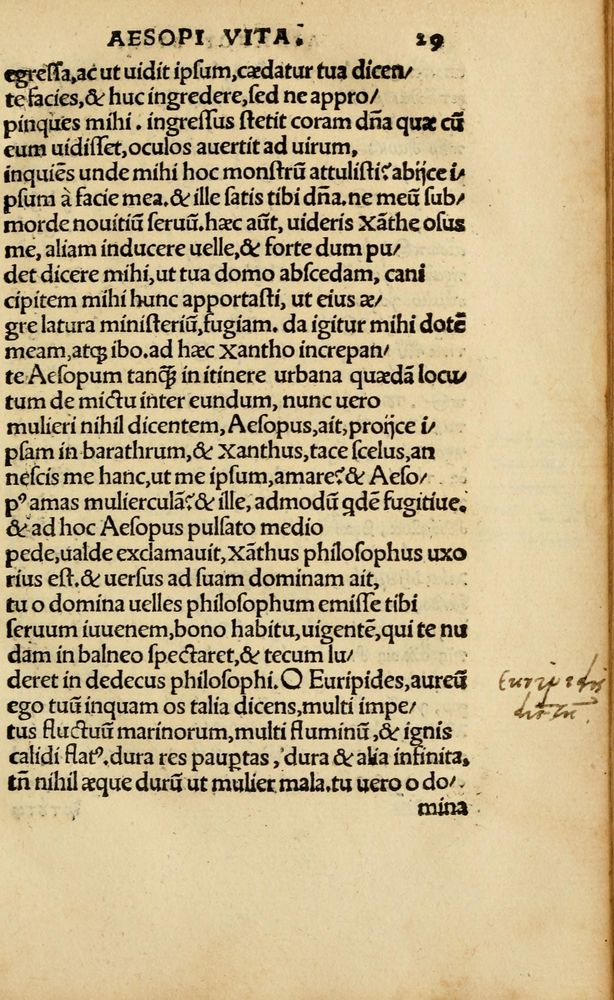 AESOPI VITA. 29
egressa, ac ut uidit ipsum, cædatur tua dicen/
te facies, & huc ingredere, sed ne appro/
pinques mihi. ingressus stetit coram dña quæ cũ
eum uidisset, oculos auertit ad uirum,
inquiẽs unde mihi hoc monstrũ attulisti? abijce i/
psum à facie mea. & ille satis tibi dña. ne meũ sub/
morde nouitiũ seruũ. hæc aũt, uideris Xãthe osus
me, aliam inducere uelle, & forte dum pu/
det dicere mihi, ut tua domo abscedam, cani
cipitem mihi hunc apportasti, ut eius æ/
gre latura ministeriũ, fugiam. da igitur mihi dotẽ
meam, atq; ibo. ad hæc Xantho increpan/
te Aesopum tanq̃ in itinere urbana quædã locu/
tum de mictu inter eundum, nunc uero
mulieri nihil dicentem, Aesopus, ait, proijce i/
psam in barathrum, & Xanthus, tace scelus, an
nescis me hanc, ut me ipsum, amare? & Aeso/
pꝰ amas mulierculã? & ille, admodũ qdẽ fugitiue.
& ad hoc Aesopus pulsato medio
pede, ualde exclamauit, Xãthus philosophus uxo
rius est. & uersus ad suam dominam ait,
tu o domina uelles philosophum emisse tibi
seruum iuuenem, bono habitu, uigentẽ, qui te nu
dam in balneo spectaret, & tecum lu/
deret in dedecus philosophi. O Euripides, aureũ
ego tuũ inquam os talia dicens, multi impe/
tus fluctuũ marinorum, multi fluminũ, & ignis
calidi flatꝰ. dura res pauꝑtas, dura & alia infinita,
tñ nihil æque durũ ut mulier mala. tu uero o do/
mina
Euripidis
dictũ.